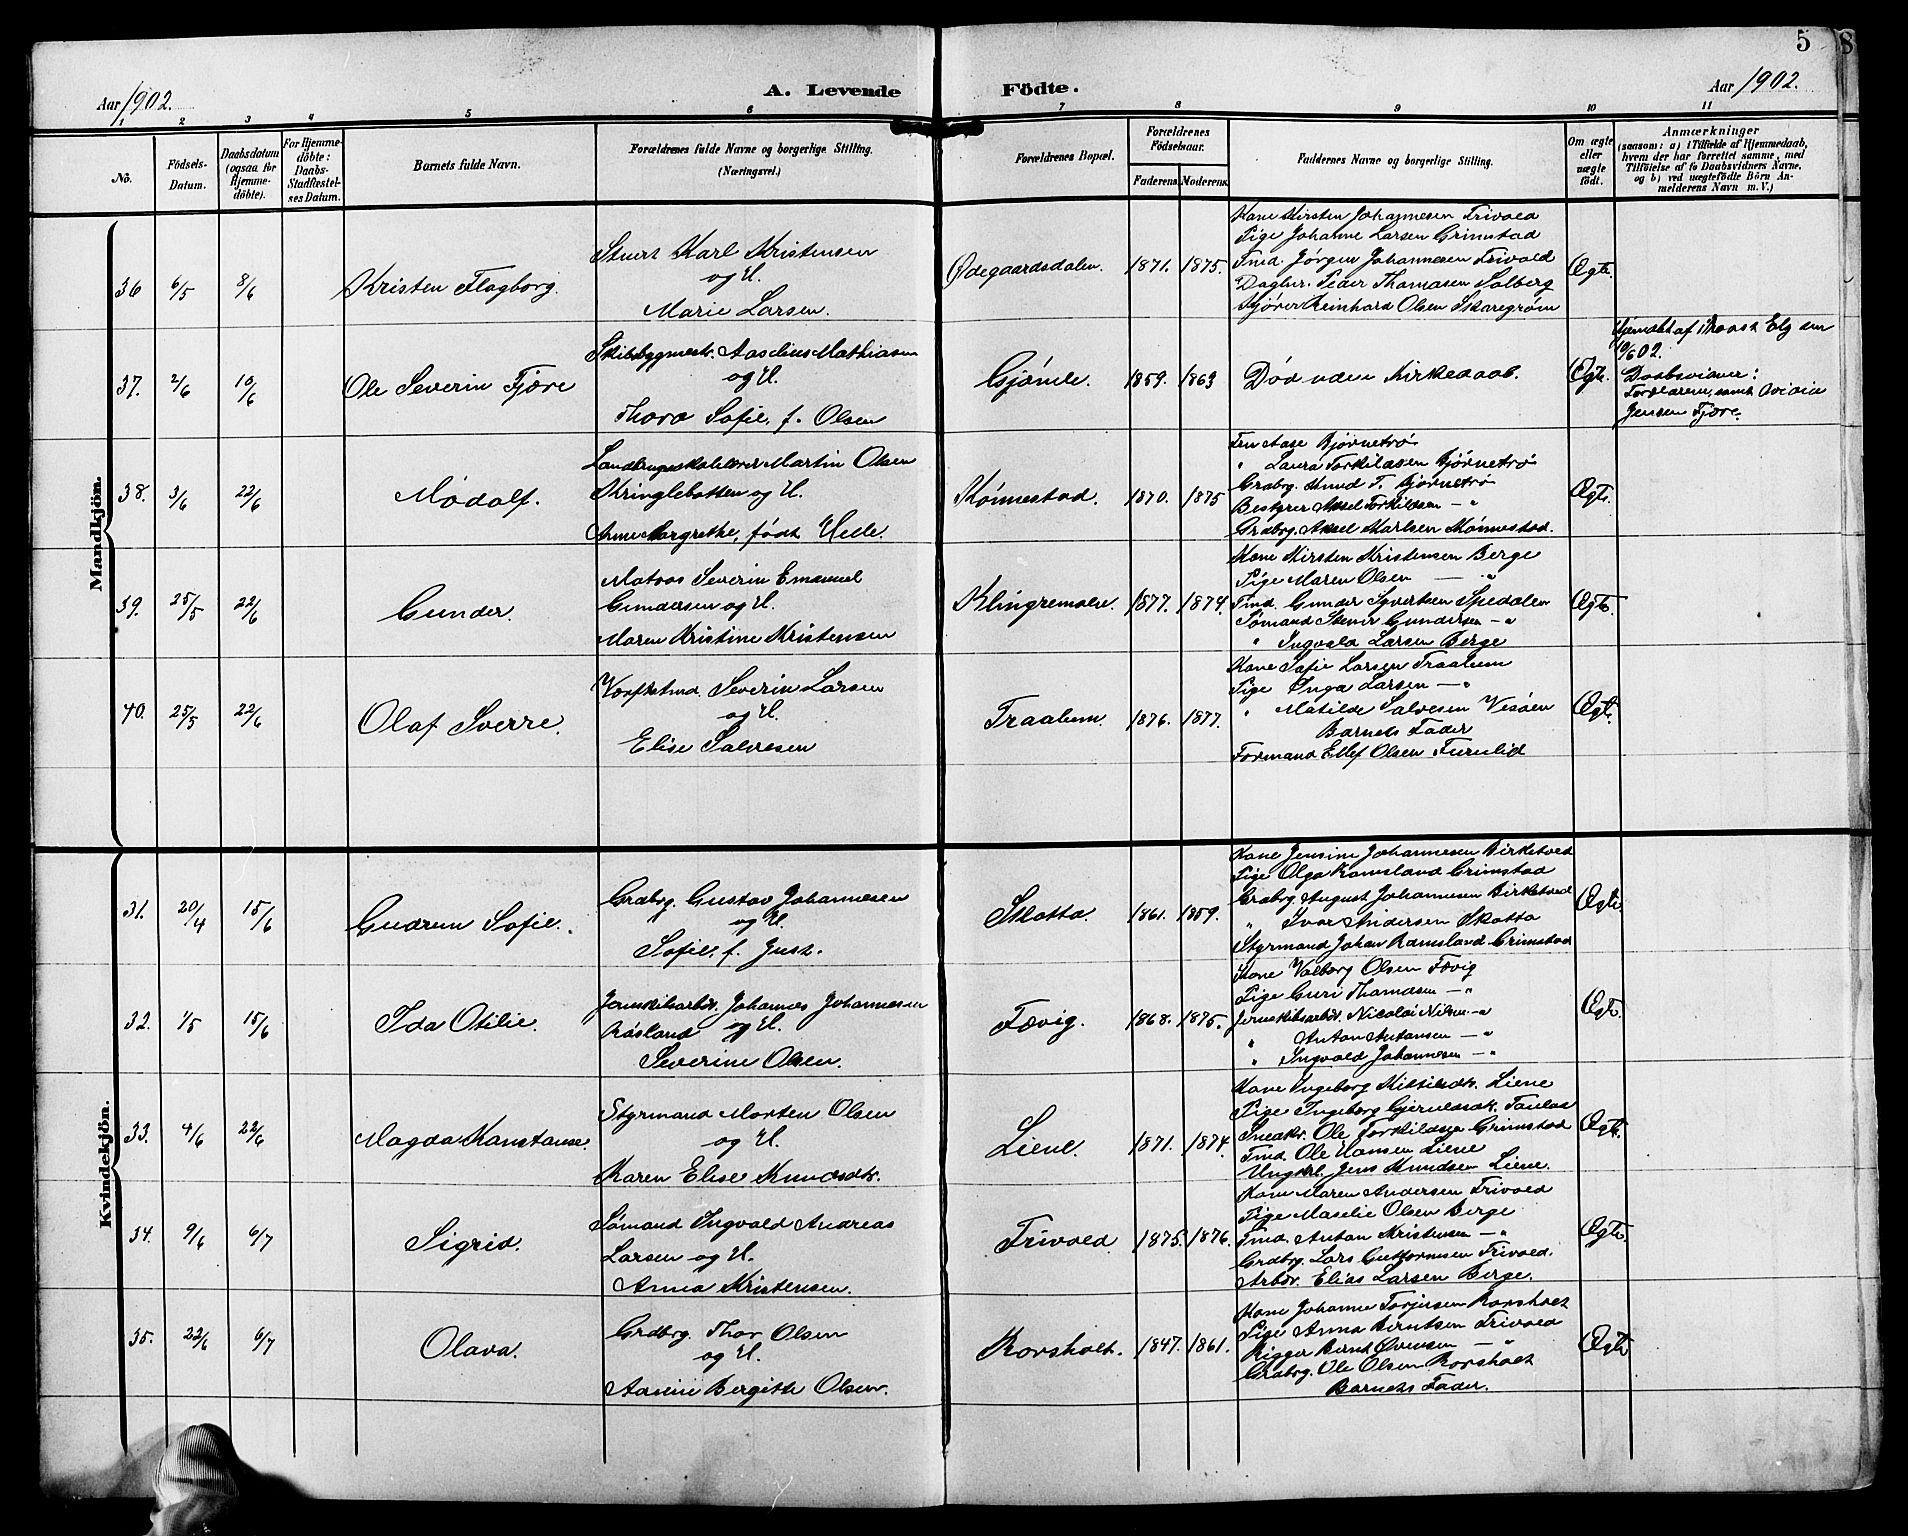 5
8
Aar 1902.
A. Levende Födte.
Aar 1902.
1 2 3 4 5 6 7 8 9 10 11
No.
Födsels-Datum.
Daabsdatum (ogsaa for Hjemme-döbte).
For Hjemme-döbte: Daabs-Stadfæstel-ses Datum.
Barnets fulde Navn.
Forældrenes fulde Navne og borgerlige Stilling.
(Næringsvei.)
Forældrenes Bopæl.
Forældrenes Födselsaar.
Faderens. Moderens.
Faddernes Navne og borgerlige Stilling.
Om ægte eller uægte födt.
Anmærkninger
(saasom: a) i Tilfælde af Hjemmedaab,
hvem der har forrettet samme, med
Tilföielse af to Daabsvidners Navne,
og b) ved uægtefödte Börn An-
melderens Navn m. V.)
Mandkjön.
36 6/5 8/6 Kristen Flagborg.
Stuert Karl Kristensen
og H.
Marie Larsen.
Ødegaardsdalen. 1871. 1875.
Kone Kirsten Johannesen Trivold
Pige Johanne Larsen Grimstad
Tmd. Jørgen Johannesen Trivold
Dagbr. Peder Thomasen Solberg
Kjører Reinhard Olsen Skaregrøm
Ægte.
37. 2/6 10/6 Ole Severin Fjære
Skibsbygmestr. Aaselius Mathiasen
og H.
Thora Sofie, f. Olsen
Gjømle. 1859. 1863
Død uden Kirkedaab.
Ægte.
Hjemdøbt af Provst Elg
10/6 02.
Daabsvidner:
Forældrene, samt
Jensen Fjære.
38. 3/6 22/6 Mødolf.
Landbrugsskolelærer Martin Olsen
Kringlebotten og H.
Anne Margrethe, født Hede.
Kønnestad. 1870. 1875
Fru Aase Bjørnetrø
" Laura Torkildsen Bjørnetrø
Grdbrg. Knud T. Bjørnetrø
Bestyrer Aksel Torkildsen — "
Grdbrg. Aksel Karlsen Kønnestad.
Ægte.
39. 25/5 22/6 Gunder.
Matros Severin Emanuel
Gundersen og H.
Maren Kristine Kristensen
Klingremoen. 1877. 1874.
Kone Kirsten Kristensen Berge
Pige Maren Olsen — "
Tmd. Gunder Syvertsen Spedalen
Sømand Stener Gundersen — "
" Ingvald Larsen Berge
Ægte.
40. 25/5 22/6 Olaf Sverre.
Værftstmd. Severin Larsen
og H.
Elise Salvesen
Traalum. 1876. 1877.
Kone Sofie Larsen Traalum
Pige Inga Larsen — "
" Matilde Salvesen Visøen
Barnets Fader
Formand Ellef Olsen Furulid
Ægte.
Kvindekjön.
31. 20/4 15/6 Gudrun Sofie.
Grdbrg. Gustav Johannesen
og H.
Sofie, f. Just.
Skotta. 1861. 1859.
Kone Jensine Johannesen Birketved
Pige Olga Ramsland Grimstad
Grdbrg. August Johannesen Birketved
" Ivar Andersen Skotta
Styrmand Johan Ramsland Grimstad
Ægte.
32. 1/5 15/6 Ida Otilie.
Jernskibsarbdr. Johannes Johannesen
Røsland og H.
Severine Olsen.
Fævig. 1868. 1875.
Kone Valborg Olsen Fævig
Pige Guri Thomasen — "
Jernskibsarbdr. Nicolai Nilsen — "
" Anton Antonsen — "
" Ingvald Johannesen — "
Ægte.
33. 4/6 22/6 Magda Konstanse.
Styrmand Morten Olsen
og H.
Karen Elise Knudsdtr.
Liene. 1871. 1874.
Kone Ingeborg Kittilsdtr. Liene
Pige Ingeborg
Snedkr. Ole Torkildsen Grimstad
Tmd. Ole Hansen Liene
Ungkl. Jens Knudsen Liene.
Ægte.
34. 9/6 6/7 Sigrid.
Sømand Ingvald Andreas
Larsen og H.
Anna Kristensen.
Trivold 1875. 1876.
Kone Maren Andersen Trivold
Pige Maselie Olsen Berge
Tmd. Anton Kristensen — "
Grdbrg. Lars Guttormsen Trivold.
Arbdr. Elias Larsen Berge.
Ægte.
35. 22/6 6/7 Olava.
Grdbrg. Thor Olsen
og H.
Aasine Bergitte Olsen.
Rorsholt. 1847. 1861.
Kone Johanne Torjusen Rorsholt
Pige Anna Berntsen Trivold
Rigger Bernt Evensen — "
Grdbrg. Ole Olsen Rorsholt
Barnets Fader.
Ægte